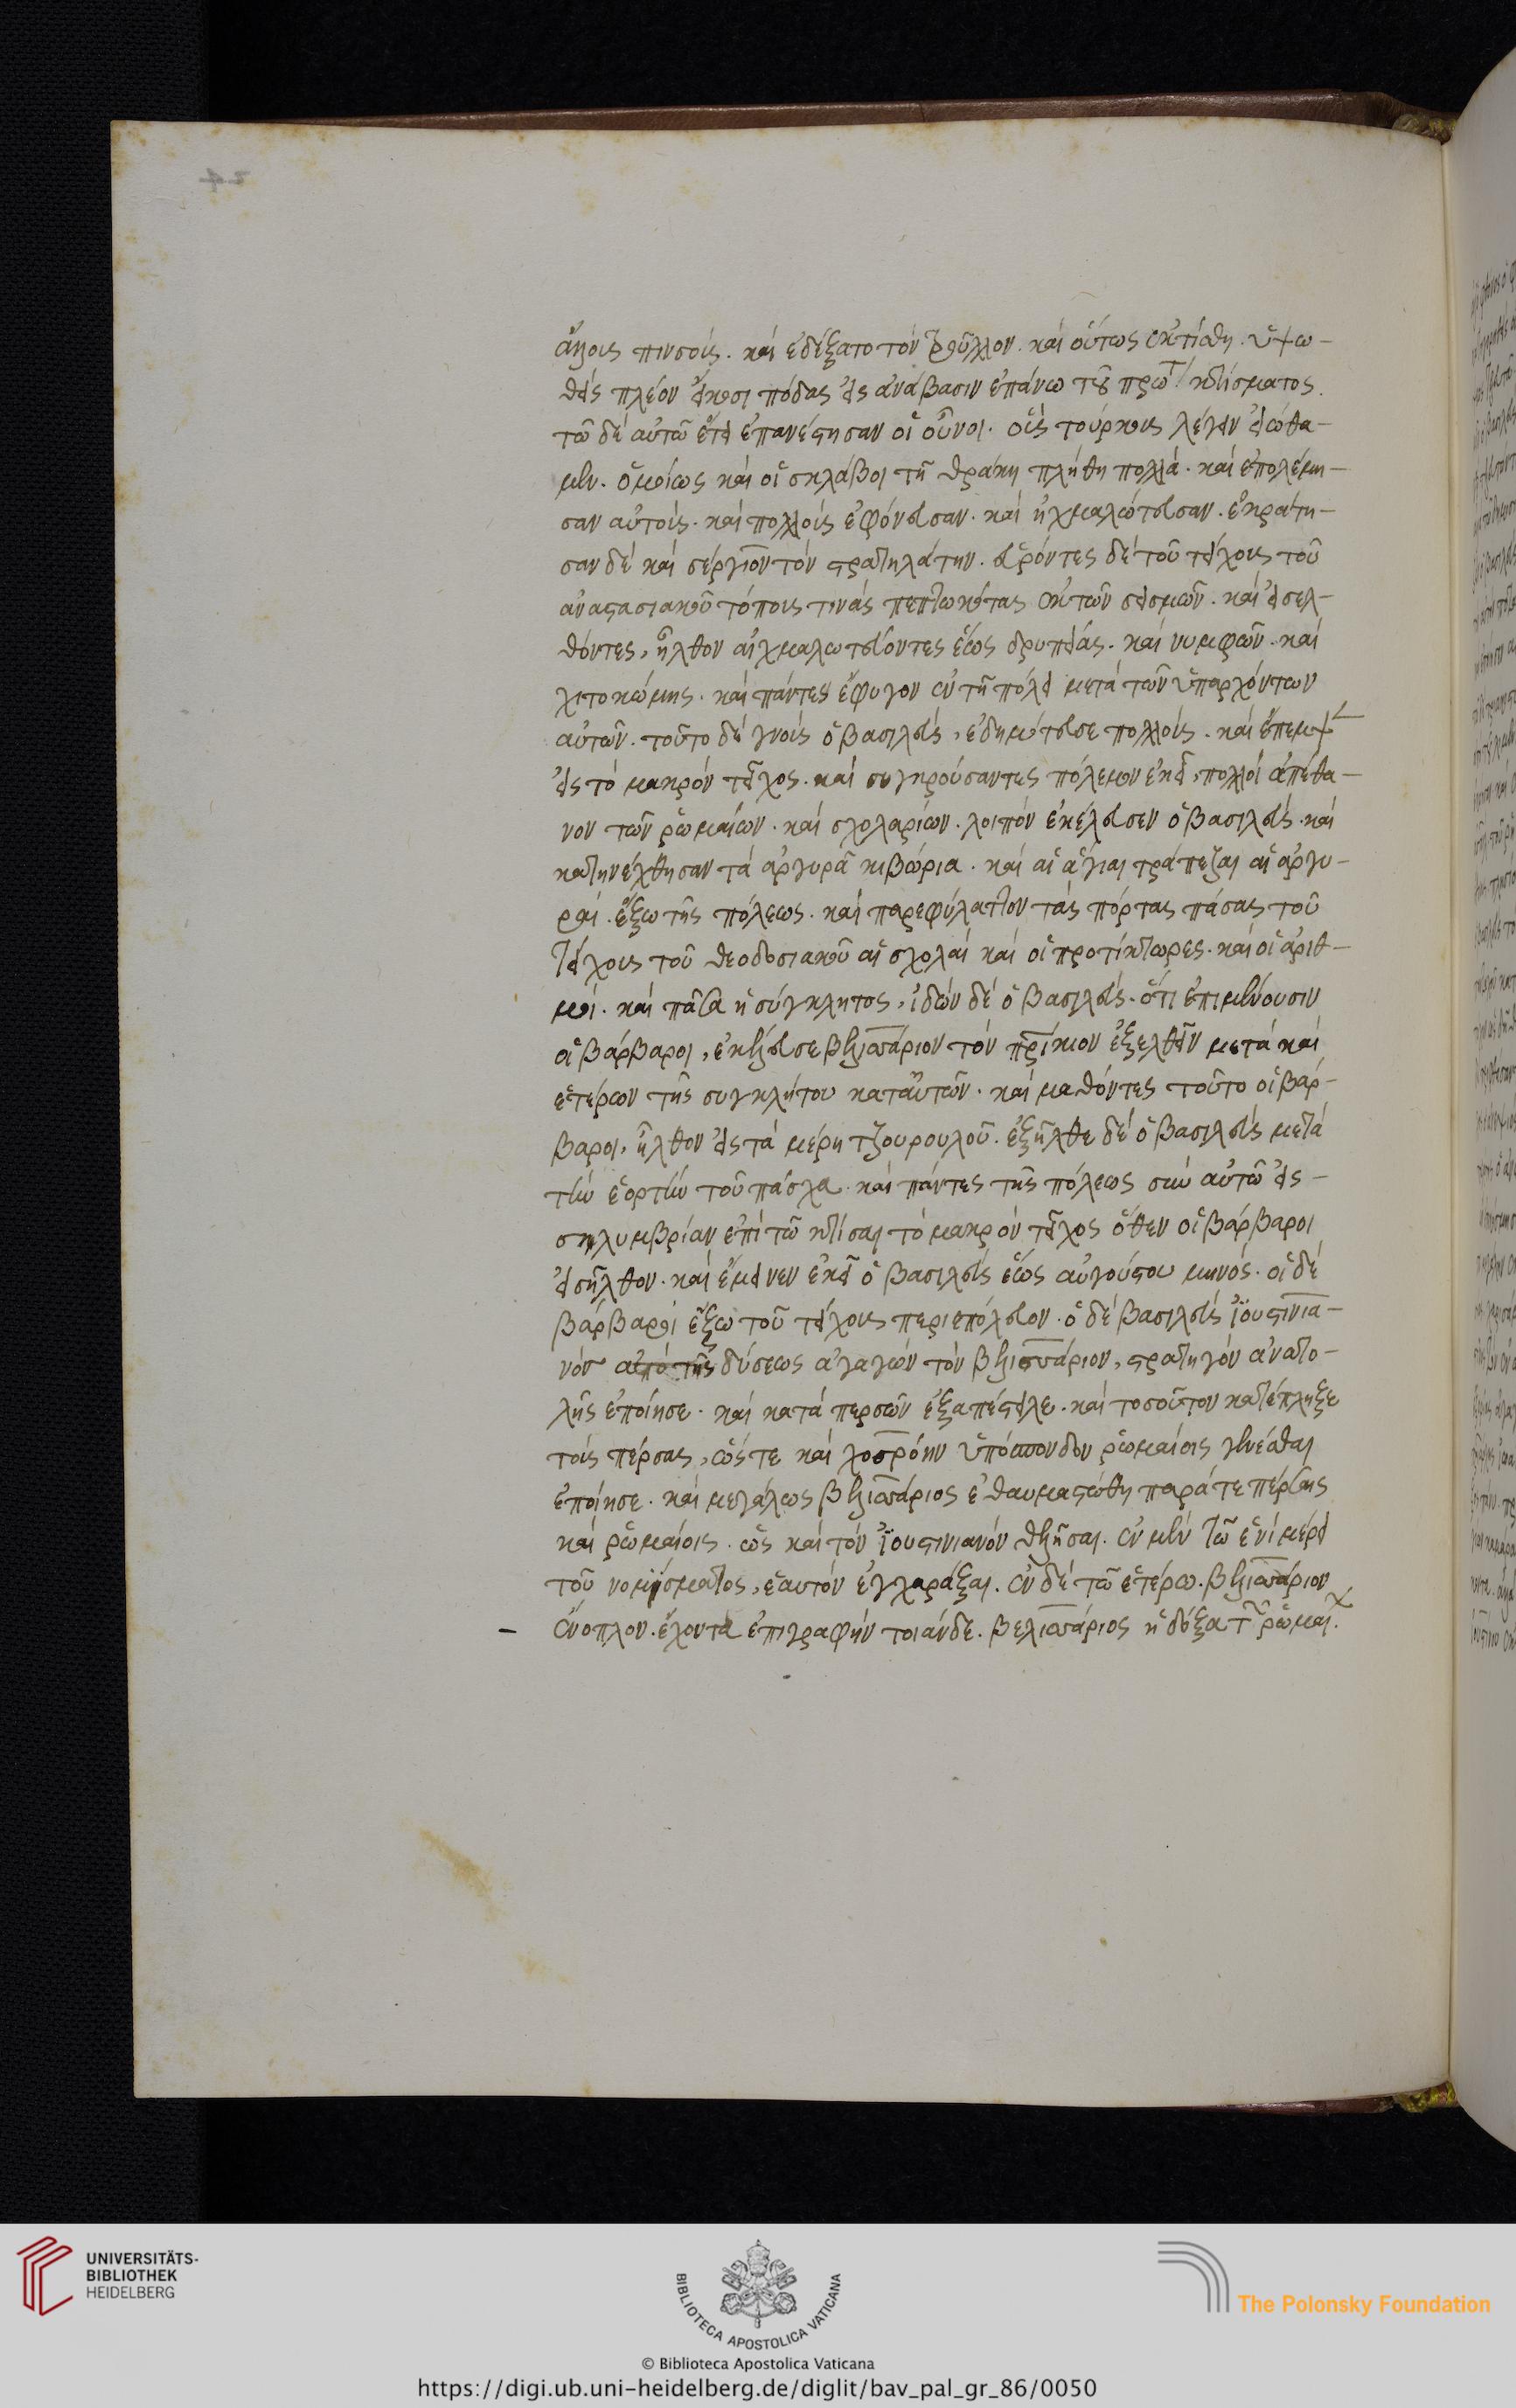 ἄλλους πινσούς. καὶ ἐδέξατο τὸν τροῦλλον. καὶ οὕτως ἐκτίσθη. ὑψω-
θεὶς πλέον εἴκοσι πόδας εἰς ἀνάβασιν ἐπάνω τοῦ πρώτ κτίσματος.
τῶ δὲ αὐτῶ ἔτει ἐπανέστησαν οἱ οὖννοι. οὓς τούρκους λέγειν εἰώθα-
μεν. ὁμοίως καὶ οἱ σκλάβοι τῆ θράκη πλήθη πολλά. καὶ ἐπολέμη-
σαν αὐτούς. καὶ πολλοὺς ἐφόνευσαν. καὶ ἠχμαλώτευσαν. ἐκράτη-
σαν δὲ καὶ σέργιον τὸν στρατηλάτην. εὑρόντες δὲ τοῦ τείχους τοῦ
ἀναστασιακοῦ τόπους τινὰς πεπτωκότας ἐκ τῶν σεισμῶν. καὶ εἰσελ-
θόντες, ἦλθον αἰχμαλωτεύοντες ἕως δρυπείας. καὶ νυμφῶν. καὶ
χιτοκώμης. καὶ πάντες ἔφυγον ἐν τῆ πόλει μετὰ τῶν ὑπαρχόντων
αὐτῶν. τοῦτο δὲ γνοὺς ὁ βασιλεὺς, ἐδημότευσε πολλούς. καὶ ἔπεμψ
εἰς τὸ μακρὸν τεῖχος. καὶ συγκρούσαντες πόλεμον ἐκεῖ, πολλοὶ ἀπέθα-
νον τῶν ῥωμαίων. καὶ σχολαρίων. λοιπὸν ἐκέλευσεν ὁ βασιλεὺς. καὶ
κατηνέχθησαν τὰ ἀργυρᾶ κιβώρια. καὶ αἱ ἅγιαι τράπεζαι αἱ ἀργυ-
ραῖ. ἔξω τῆς πόλεως. καὶ παρεφύλαττον τὰς πόρτας πάσας τοῦ
τείχους τοῦ θεοδοσιακοῦ αἱ σχολαὶ καὶ οἱ προτίκτωρες. καὶ οἱ ἀριθ-
μοί. καὶ πᾶσα ἡ σύγκλητος, ἰδὼν δὲ ὁ βασιλεὺς. ὅτι ἐπιμένουσιν
οἱ βάρβαροι, ἐκέλευσε βελισσάριον τὸν πρίκιον ἐξελθεῖν μετὰ καὶ
ἑτέρων τῆς συγκλήτου κατ' αὐτῶν. καὶ μαθόντες τοῦτο οἱ βάρ-
βαροι, ἦλθον εἰς τὰ μέρη τζουρουλοῦ. ἐξῆλθε δὲ ὁ βασιλεὺς μετὰ
τὴν ἑορτὴν τοῦ πάσχα. καὶ πάντες τῆς πόλεως σὺν αὐτῶ εἰς-
σηλυμβρίαν ἐπὶ τῶ κτίσαι τὸ μακρὸν τεῖχος ὅθεν οἱ βάρβαροι
εἰσῆλθον. καὶ ἔμεινεν ἐκεῖ ὁ βασιλεὺς ἕως αὐγούστου μηνός. οἱ δὲ
βάρβαροι ἔξω τοῦ τείχους περιεπόλευον. ὁ δὲ βασιλεὺς ἰουστινια-
νὸν ἀπὸ τῆς δύσεως ἀγαγὼν τὸν βελισσάριον, στρατηγὸν ἀνατο-
λῆς ἐποίησε. καὶ κατὰ περσῶν ἐξαπέστειλε. καὶ τοσοῦτον κατέπληξε
τοὺς πέρσας, ὥστε καὶ χοσρόην ὑπόσπονδον ῥωμαίοις γενέσθαι
ἐποίησε. καὶ μεγάλως βελισσάριος ἐθαυμαστώθη παρά τε πέρσαις
καὶ ῥωμαίοις. ὡς καὶ τὸν ἰουστινιανὸν θελῆσαι. ἐν μὲν τῶ ἑνὶ μέρει
τοῦ νομίσματος, ἑαυτὸν ἐγχαράξαι. ἐν δὲ τῶ ἑτέρω. βελισσάριον
ἔνοπλον. ἔχοντα ἐπιγραφὴν τοιάνδε. βελισσάριος ἡ δόξα τῶν ῥωμαί.
UNIVERSITÄTS-
BIBLIOTHEK
HEIDELBERG
BIBLIOTECA APOSTOLICA VATICANA
The Polonsky Foundation
© Biblioteca Apostolica Vaticana
https://digi.ub.uni-heidelberg.de/diglit/bav_pal_gr_86/0050